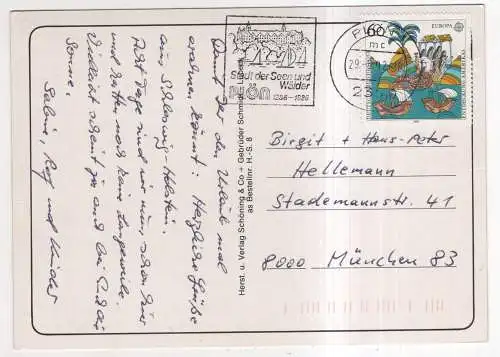 Damit Ihr den Urlaub mal
erahnen könnt: Herzliche Grüße
aus Schleswig-Holstein.
Acht Tage sind wir nun schon hier
und hatten noch keine Langeweile.
Vielleicht scheint ja auch bei Euch die
Sonne.
Sabine, und Kinder
Herst. u. Verlag Schöning & Co + Gebrüder Schmidt, Lübeck
Bestellnr. H.-S. 8
Stadt der Seen und
Wälder
PLÖN
1236-1986
PLÖN
mc
29.
23
60
EUROPA
Birgit + Hans-Peter
Hellemann
Stademannstr. 41
8000 München 83